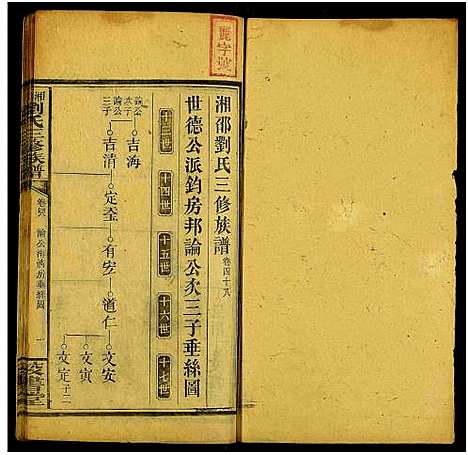 麗字號
湘邵劉氏三修族譜 卷四十八
世德公派鈞房邦論公次三子垂絲圖
十三世 十四世 十五世 十六世 十七世
論公次子 吉海
論公三子 吉清 定 有宏 道仁 文安
文寅
文定 子二
湘 劉氏三修族譜 論公 房垂絲圖 一